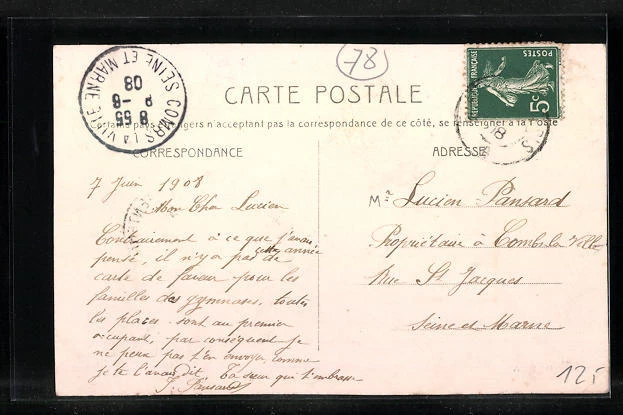 78
COMBS LA VILLE
SEINE ET MARNE
8 55
8 - 6
08
CARTE POSTALE
Certains pays étrangers n'acceptant pas la correspondance de ce côté, se renseigner à la Poste
REPUBLIQUE FRANÇAISE
POSTES
5c
CORRESPONDANCE
ADRESSE
7 Juin 1908
Mon Cher Lucien
Contrairement à ce que j'avais
pensé, il n'y a pas cette année de
carte de faveur pour les
familles des gymnases, toutes
les places sont au premier
occupant, par conséquent je
ne peux pas t'en envoyer comme
je te l'avais dit. Ta sœur qui t'embrasse
J. Pansard
Mr Lucien Pansard
Propriétaire à Combs la Ville
Rue St Jacques
Seine et Marne
12,-